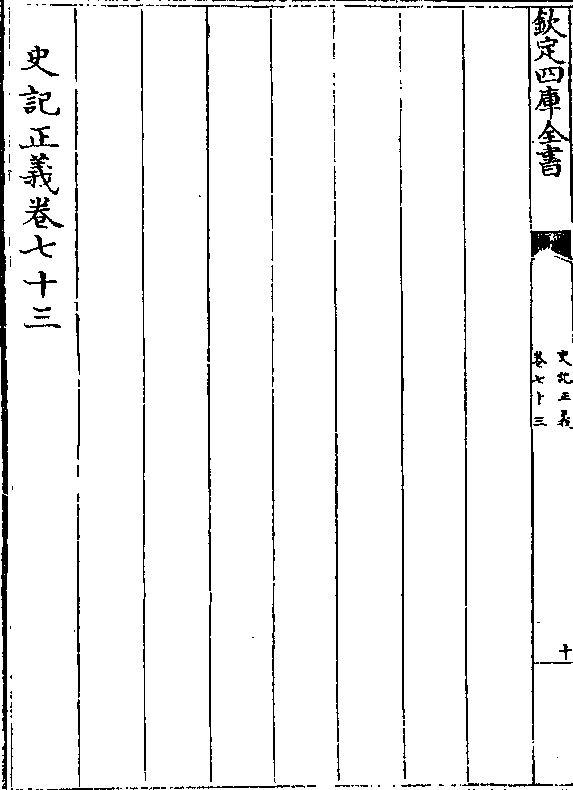 欽定四庫全書
史記正義
卷七十三
十
史記正義卷七十三